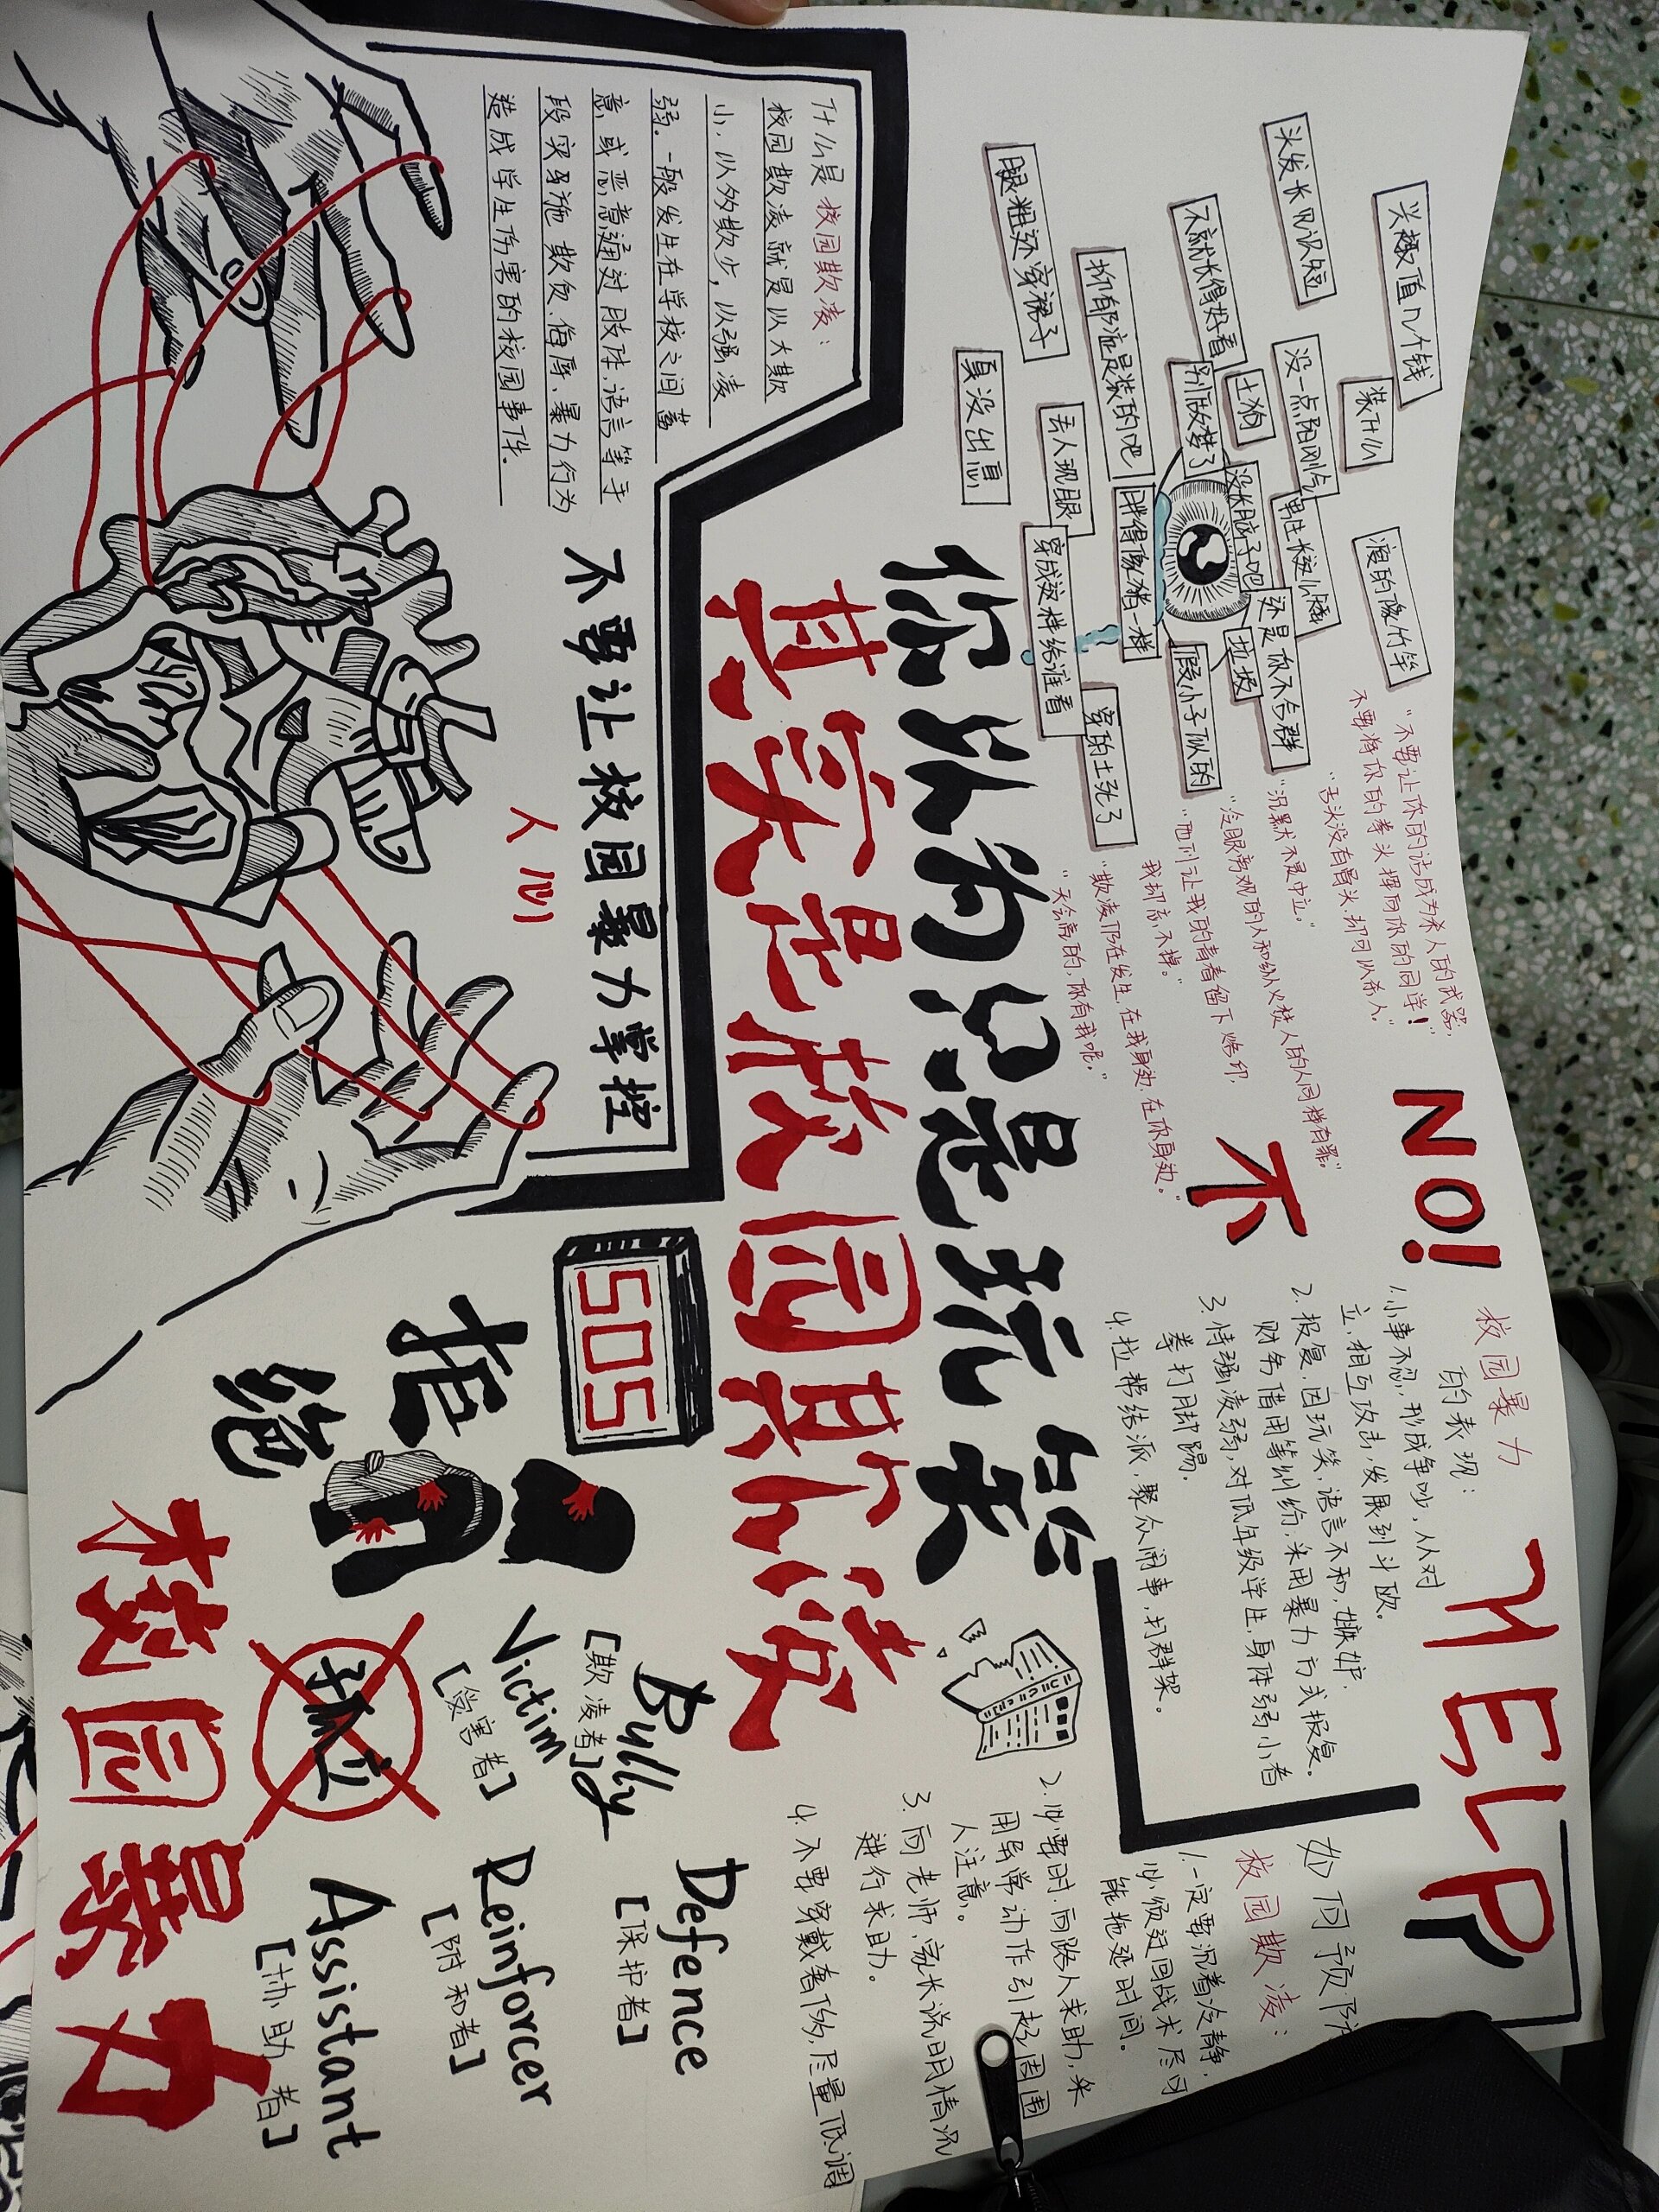 兴趣值几个钱
头发长见识短
装什么
瘦的像竹竿
没一点阳刚气
不就长得好看
土狗
男生校这么矮
别做梦了
没长脑子吧
还是你不合群
垃圾
抑郁症是装的吧
胖得像猪一样
假小子似的
腿粗还穿裙子
丢人现眼
穿成这样给谁看
穿的土死了
真没出息
"不要让你的话成为杀人的武器,
不要将你的拳头挥向你的同学!"
"舌头没有骨头,却可以杀人。"
"沉默术不是中立。"
"冷眼旁观的人和纵火烧人的人同样有罪。"
"而川让我的青春留下烙印,
我却忘不掉。"
"欺凌仍在发生,在我身边,在你身边。"
"天会亮的,你有我呢。"
NO!
不
HELP
校园暴力
的表现:
1.小事不忍,形成争吵,从对
立,相互攻击,发展到斗殴。
2.报复,因玩笑,语言不和,嫉妒,
财务借用等纠纷,采用暴力方式报复。
3.恃强凌弱,对低年级学生,身体弱小者
拳打脚踢。
4.拉帮结派,聚众闹事,打群架。
如何预防
校园欺凌:
1.一定要沉着冷静,
必须迂回战术尽可
能拖延时间。
2.必要时,向路人求助,采
用异常动作引起周围
人注意。
3.向老师,家长说明情况
进行求助。
4.不要穿戴奢侈,尽量低调
你以为只是玩笑
其实是校园欺凌
什么是校园欺凌:
校园欺凌就是以大欺
小,以多欺少,以强凌
弱。一般发生在学校之间蓄
意或恶意通过肢体,语言等手
段实施欺负、侮辱、暴力行为
造成学生伤害的校园事件。
不要让校园暴力掌控
人心
SOS
拒绝
校园暴力
孤立
Bully
[欺凌者]
Victim
[受害者]
Defence
[保护者]
Reinforcer
[附和者]
Assistant
[协助者]